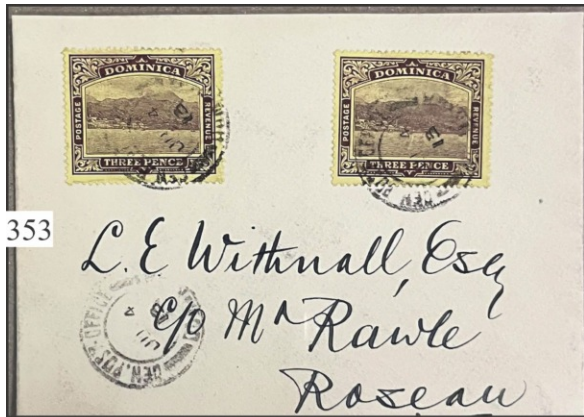 DOMINICA
POSTAGE
REVENUE
THREE PENCE
DOMINICA
POSTAGE
REVENUE
THREE PENCE
353
L. E Withnall, Esq
c/o Mr Rawle
Roseau
GEN. POST OFFICE